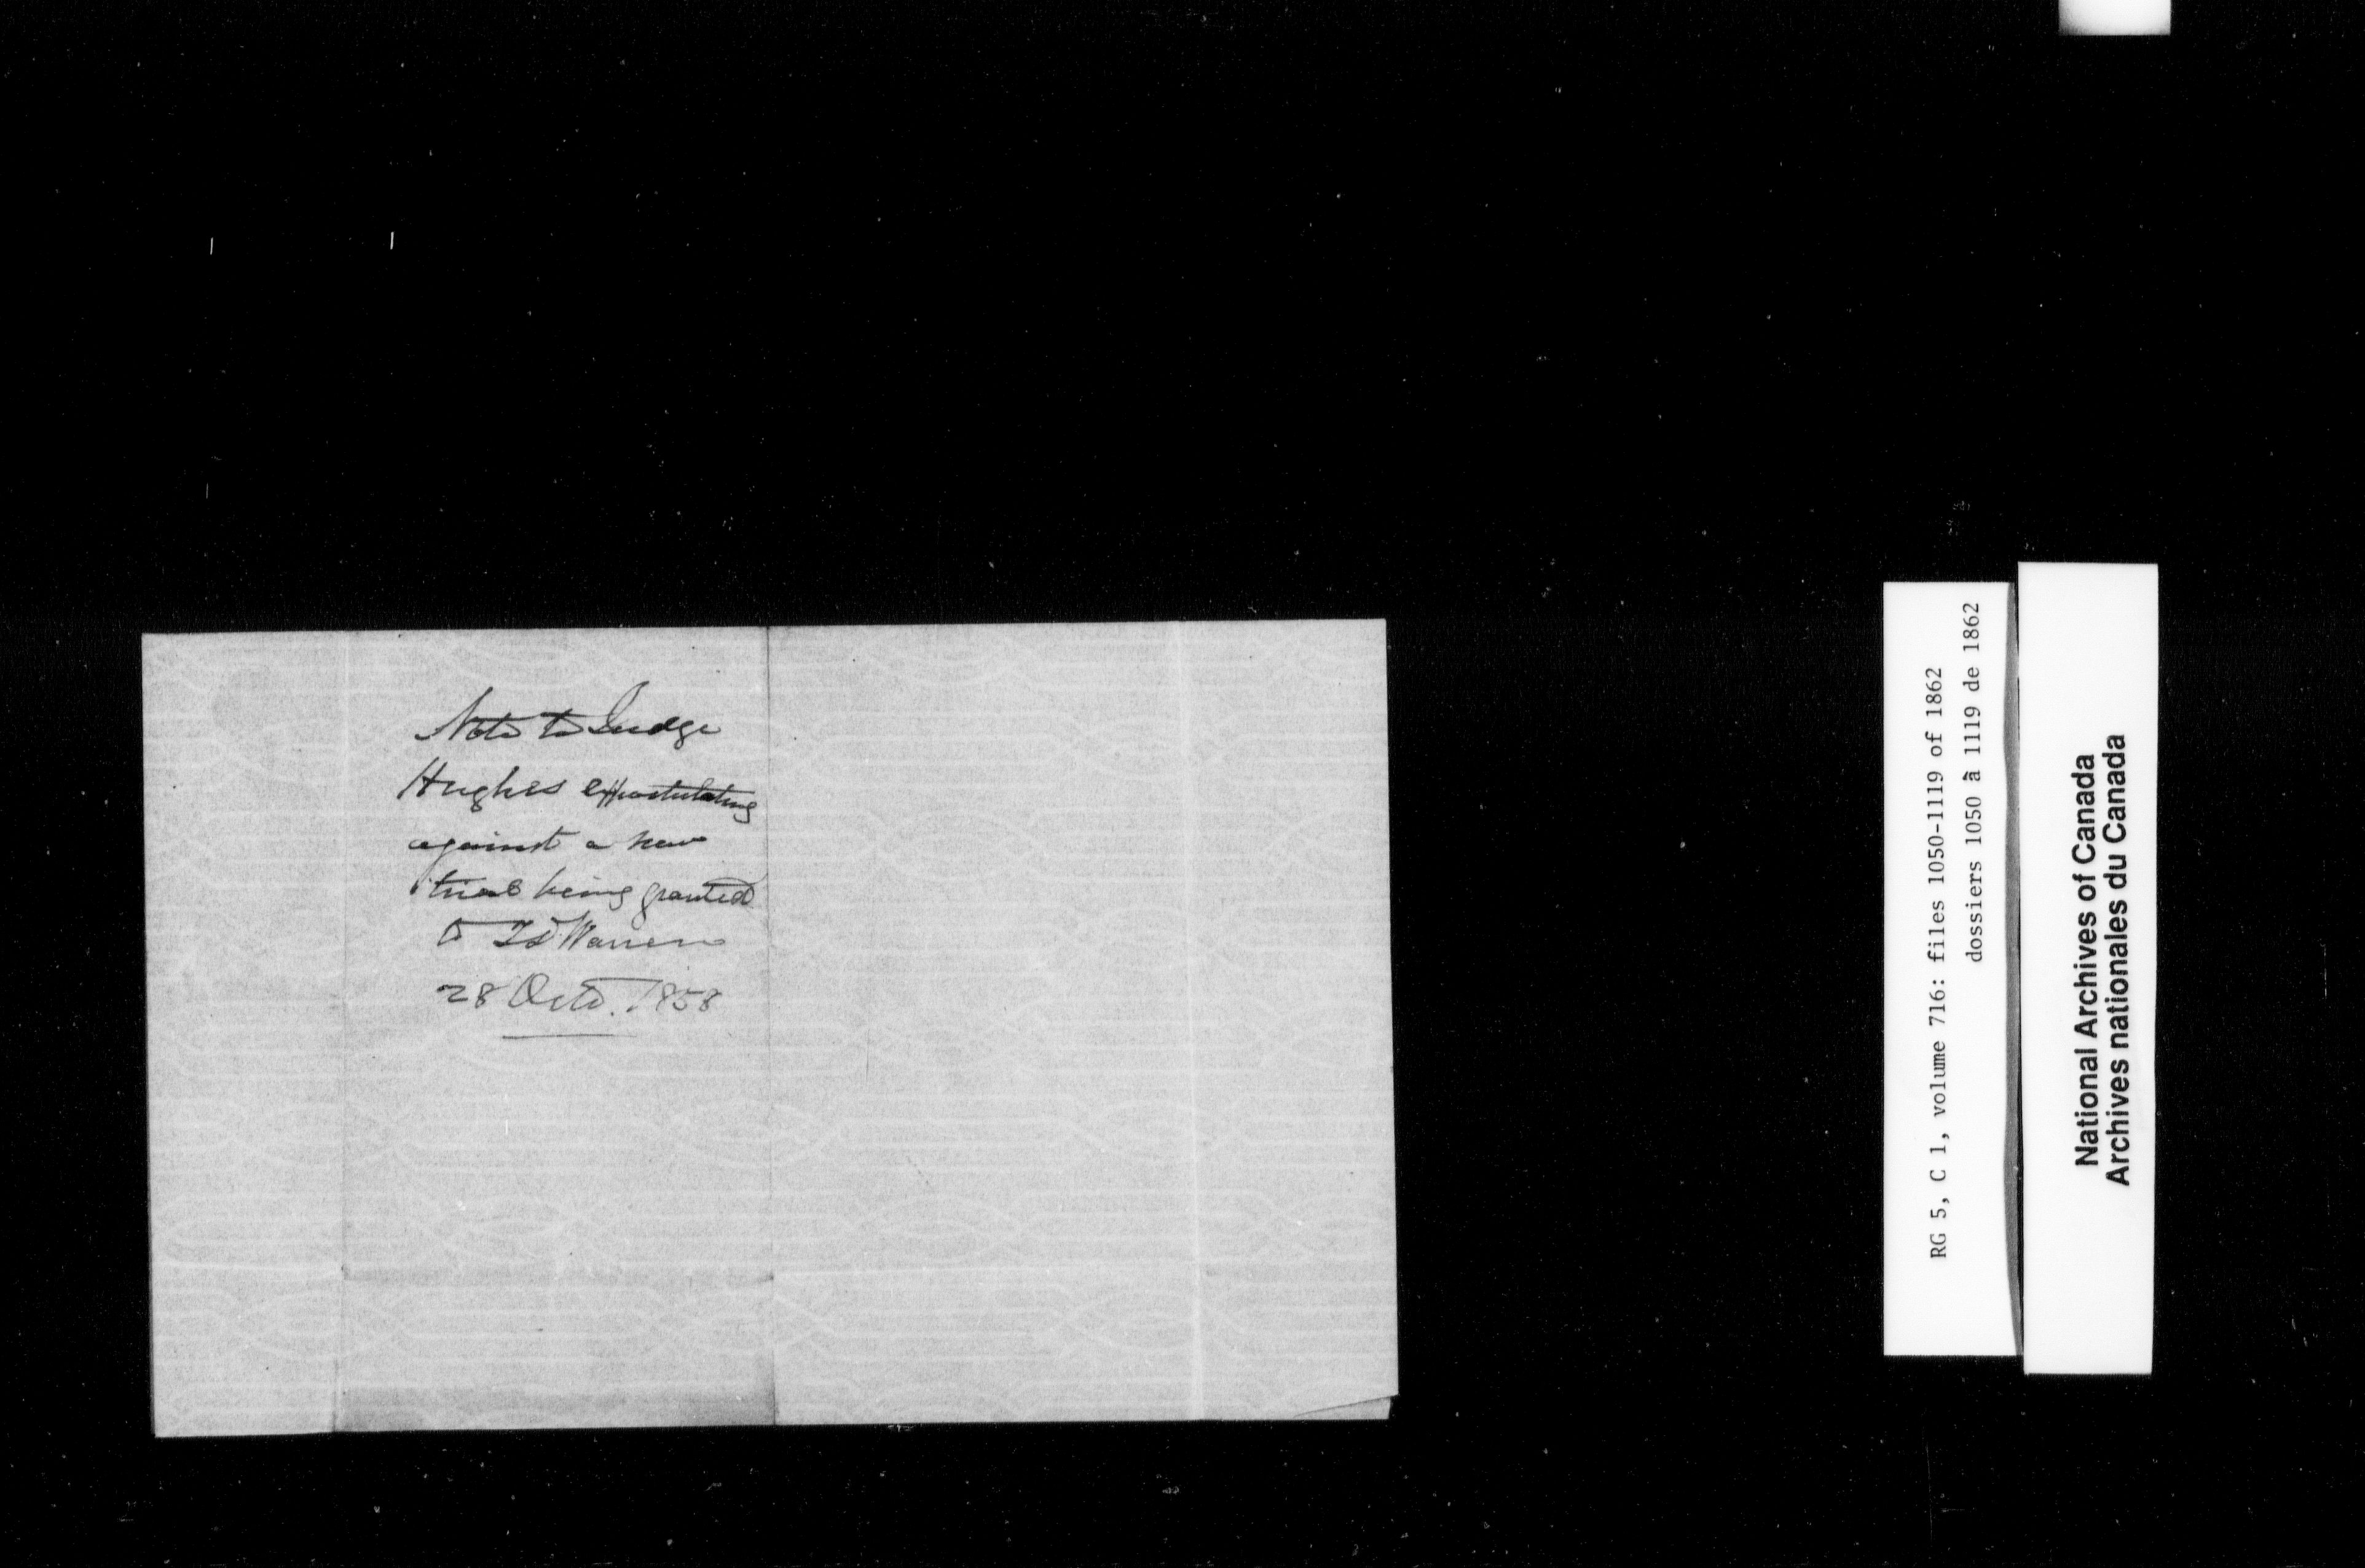 Note to Judge
Hughes expostulating
against a new
trial being granted
to Warren
28 Octo. 1858
RG 5, C 1, volume 716: files 1050-1119 of 1862
dossiers 1050 à 1119 de 1862
National Archives of Canada
Archives nationales du Canada